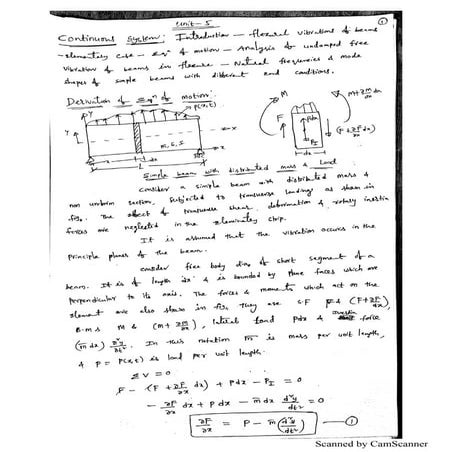 Unit-5
①
Continuous System: Introduction - flexural vibrations of beams
- elementary case - Eqn of motion - Analysis of undamped free
vibration of beams in flexure - Natural frequencies & mode
shapes of simple beams with different end conditions.
Derivation of Eqn of motion:
P(x,t)
Y
m, E, I
x
x
dx
L
M
M+∂M/∂x dx
F
Pdx
PI
(F+∂F/∂x dx)
dx
Simple beam with distributed mass & Load
Consider a simple beam with distributed mass &
non uniform section, subjected to transverse loading as shown in
fig. The effect of transverse shear deformation & rotary inertia
forces are neglected in the elementary strip.
It is assumed that the vibration occurs in the
principle planes of the beam.
consider free body dia, of short segment of a
beam. It is of length 'dx' & is bounded by plane faces which are
perpendicular to its axis. The forces & moments which act on the
element are also shown in fig, They are S.F F & (F+∂F/∂x dx),
B.m's M & (M+∂M/∂x dx), lateral load Pdx & Inertia force
(m̅ dx) d²y/dt². In this notation m̅ is mass per unit length,
& P = P(x,t) is load per unit length.
ΣV = 0
F - (F + ∂F/∂x dx) + Pdx - PI = 0
- ∂F/∂x dx + P dx - m̅ dx d²y/dt² = 0
∂F/∂x = P - m̅(d²y/dt²) — ①
Scanned by CamScanner